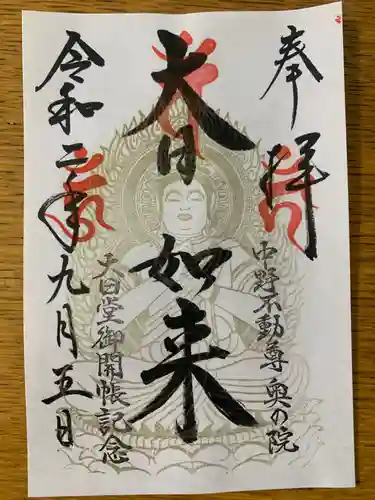 奉拝
中野不動尊奥の院
大日如来
大日堂御開帳記念
令和二年九月五日